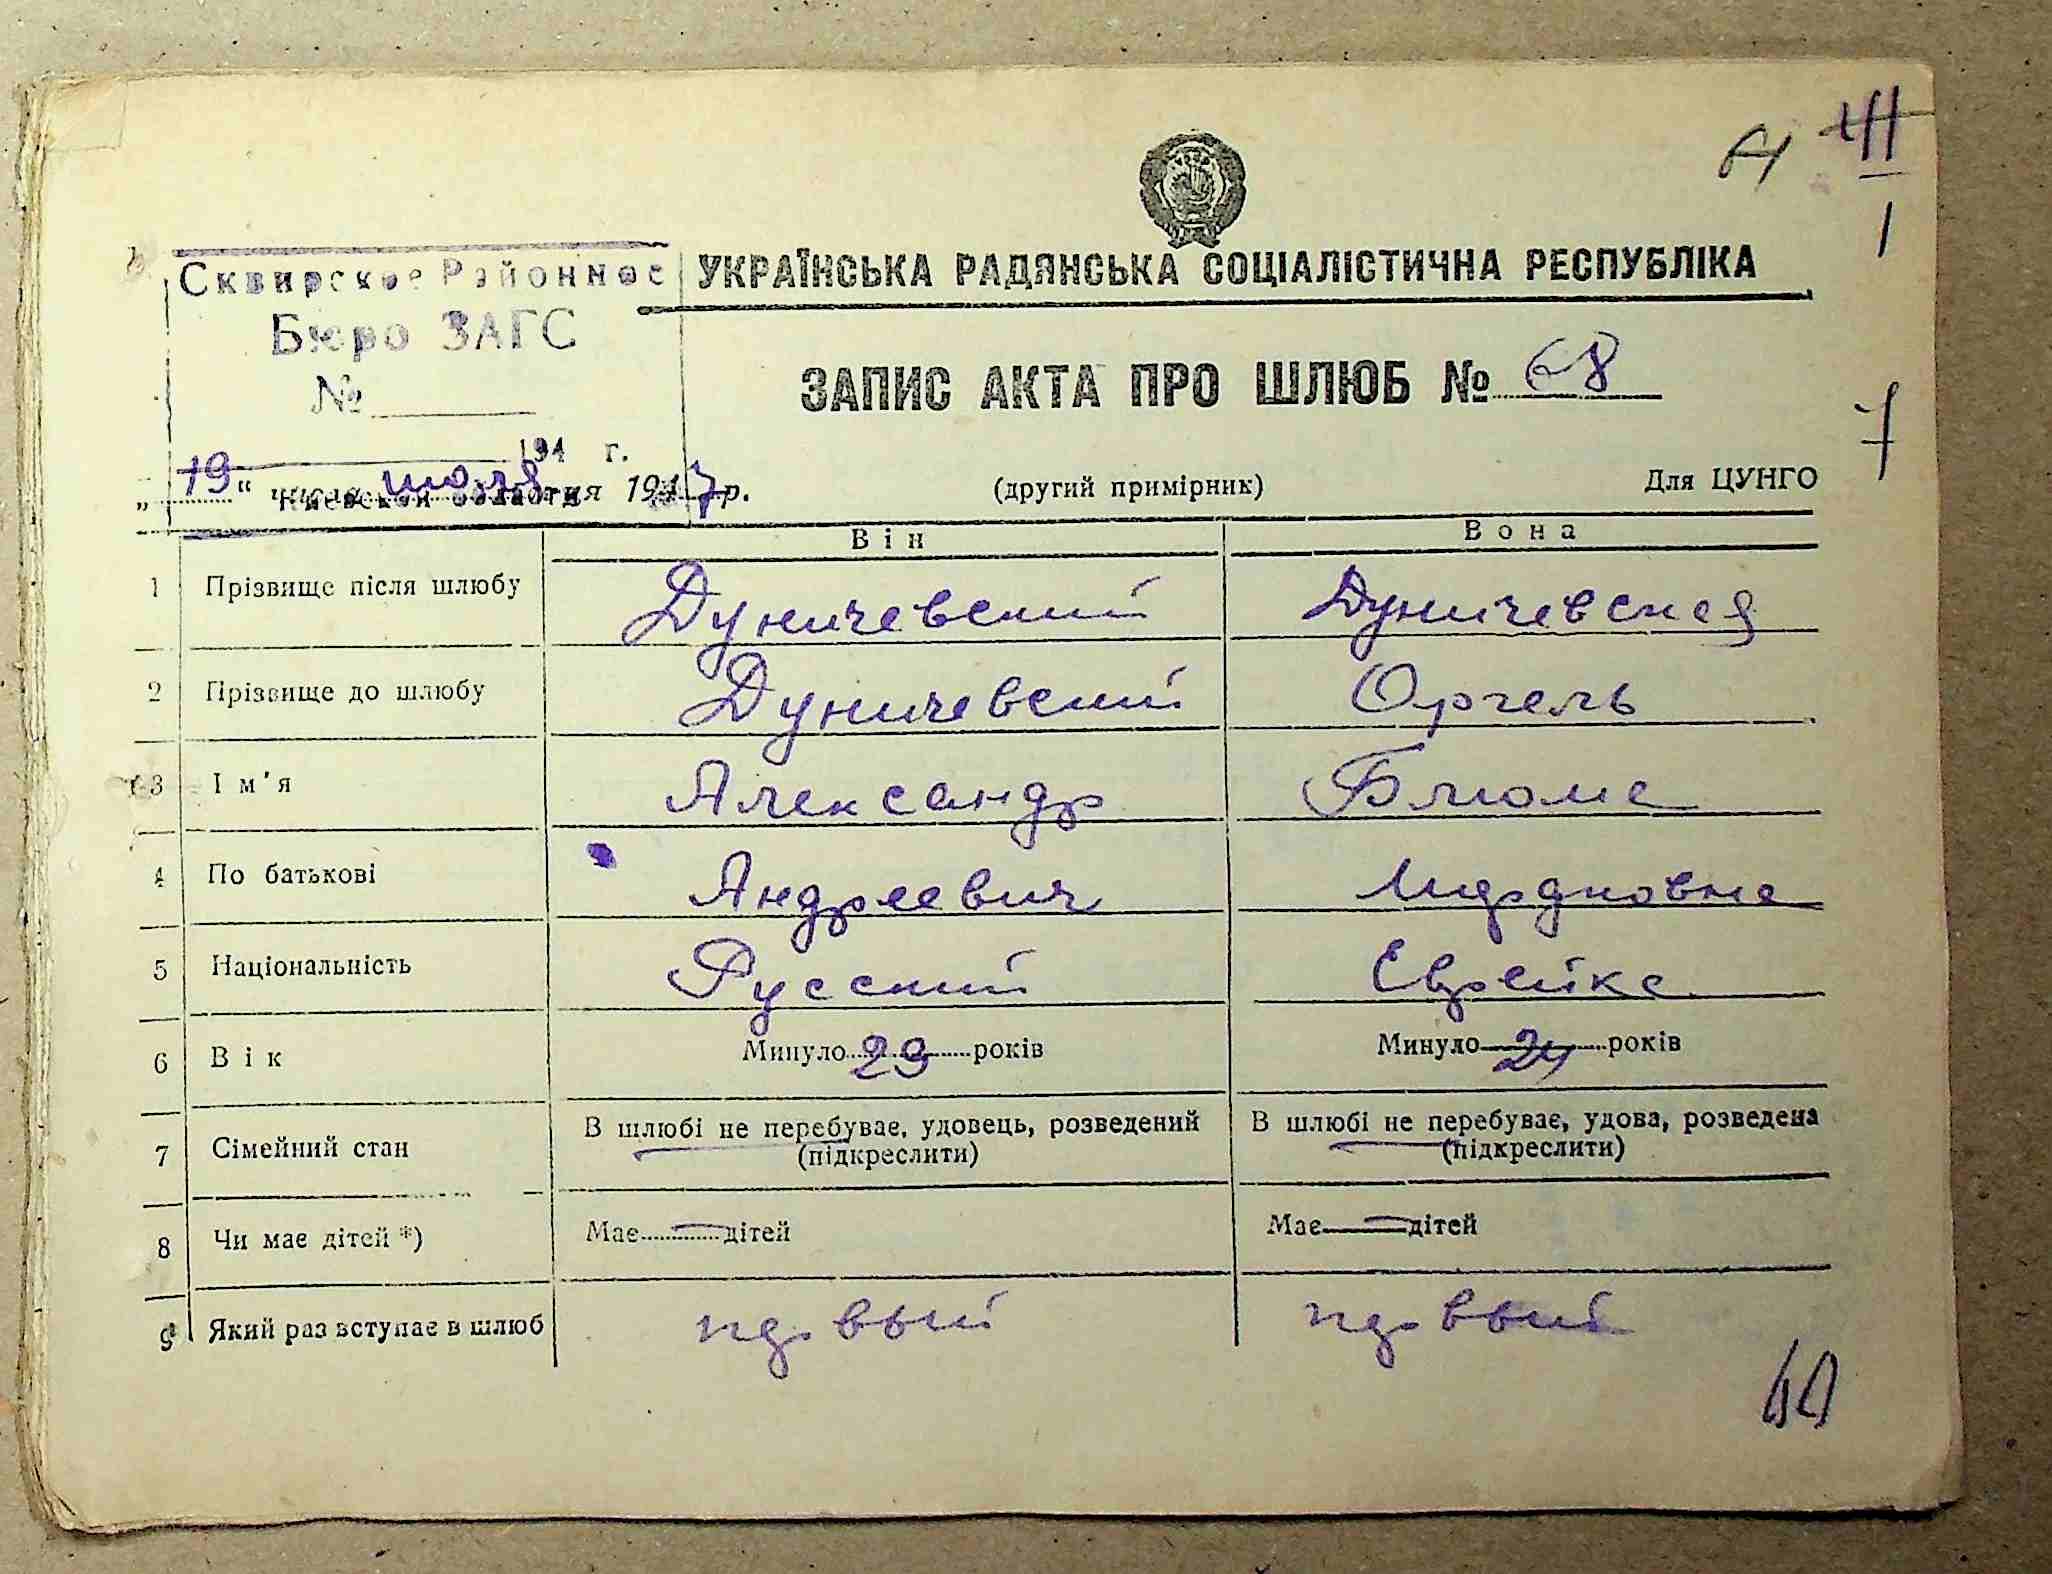 Сквирское Районное
Бюро ЗАГС
№
194 г.
Киевской области
УКРАЇНСЬКА РАДЯНСЬКА СОЦІАЛІСТИЧНА РЕСПУБЛІКА
ЗАПИС АКТА ПРО ШЛЮБ № 68
„19“ июля 1947 р.
(другий примірник)
Для ЦУНГО
Він Вона
1 Прізвище після шлюбу Дуничевский Дуничевская
2 Прізвище до шлюбу Дуничевский Оргель
3 Ім'я Александр Блюма
4 По батькові Андреевич
5 Національність Русский Еврейка
6 Вік Минуло 29 років Минуло 24 років
7 Сімейний стан В шлюбі не перебуває, удовець, розведений В шлюбі не перебуває, удова, розведена
(підкреслити) (підкреслити)
8 Чи має дітей *) Має — дітей Має — дітей
9 Який раз вступає в шлюб первый первый